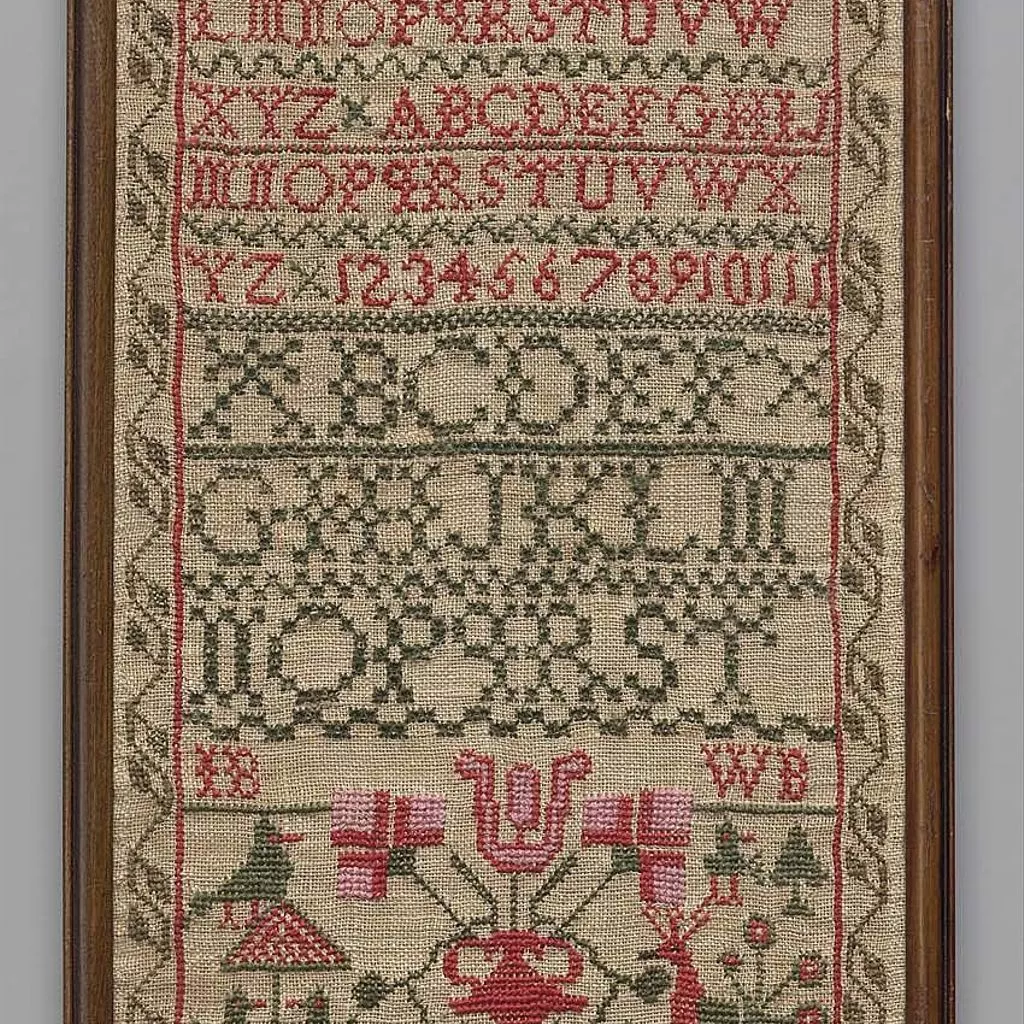 L M N O P Q R S T U V W
X Y Z × A B C D E F G H J
M N O P Q R S T U V W X
Y Z × 1 2 3 4 6 6 7 8 9 10 11 1
A B C D E F ×
G H J K L M
N O P Q R S T
IB WB